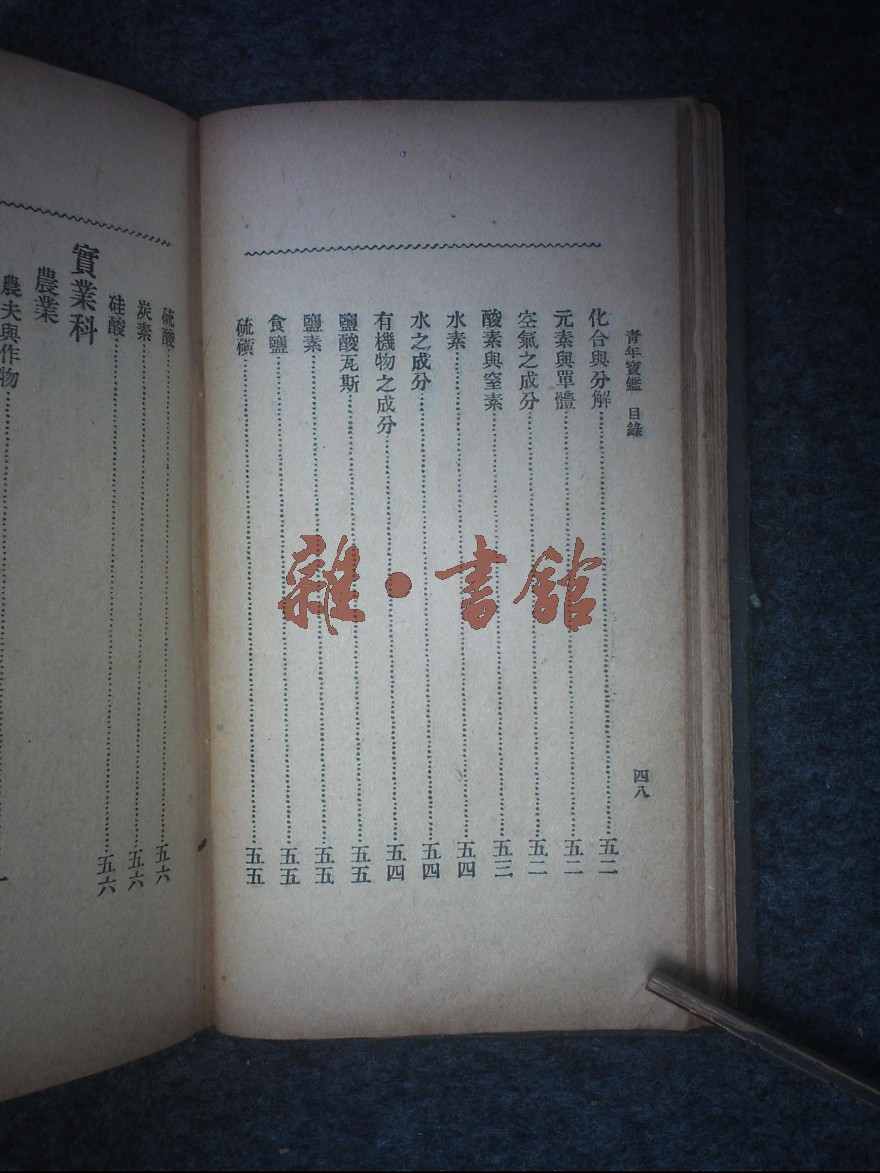 青年寶鑑 目錄
四八
化合與分解……五二
元素與單體……五二
空氣之成分……五二
酸素與窒素……五三
水素……五四
水之成分……五四
有機物之成分……五四
鹽酸瓦斯……五五
鹽素……五五
食鹽……五五
硫磺……五五
硫酸……五六
炭素……五六
硅酸……五六
實業科
農業
農夫與作物……一
雜·書館